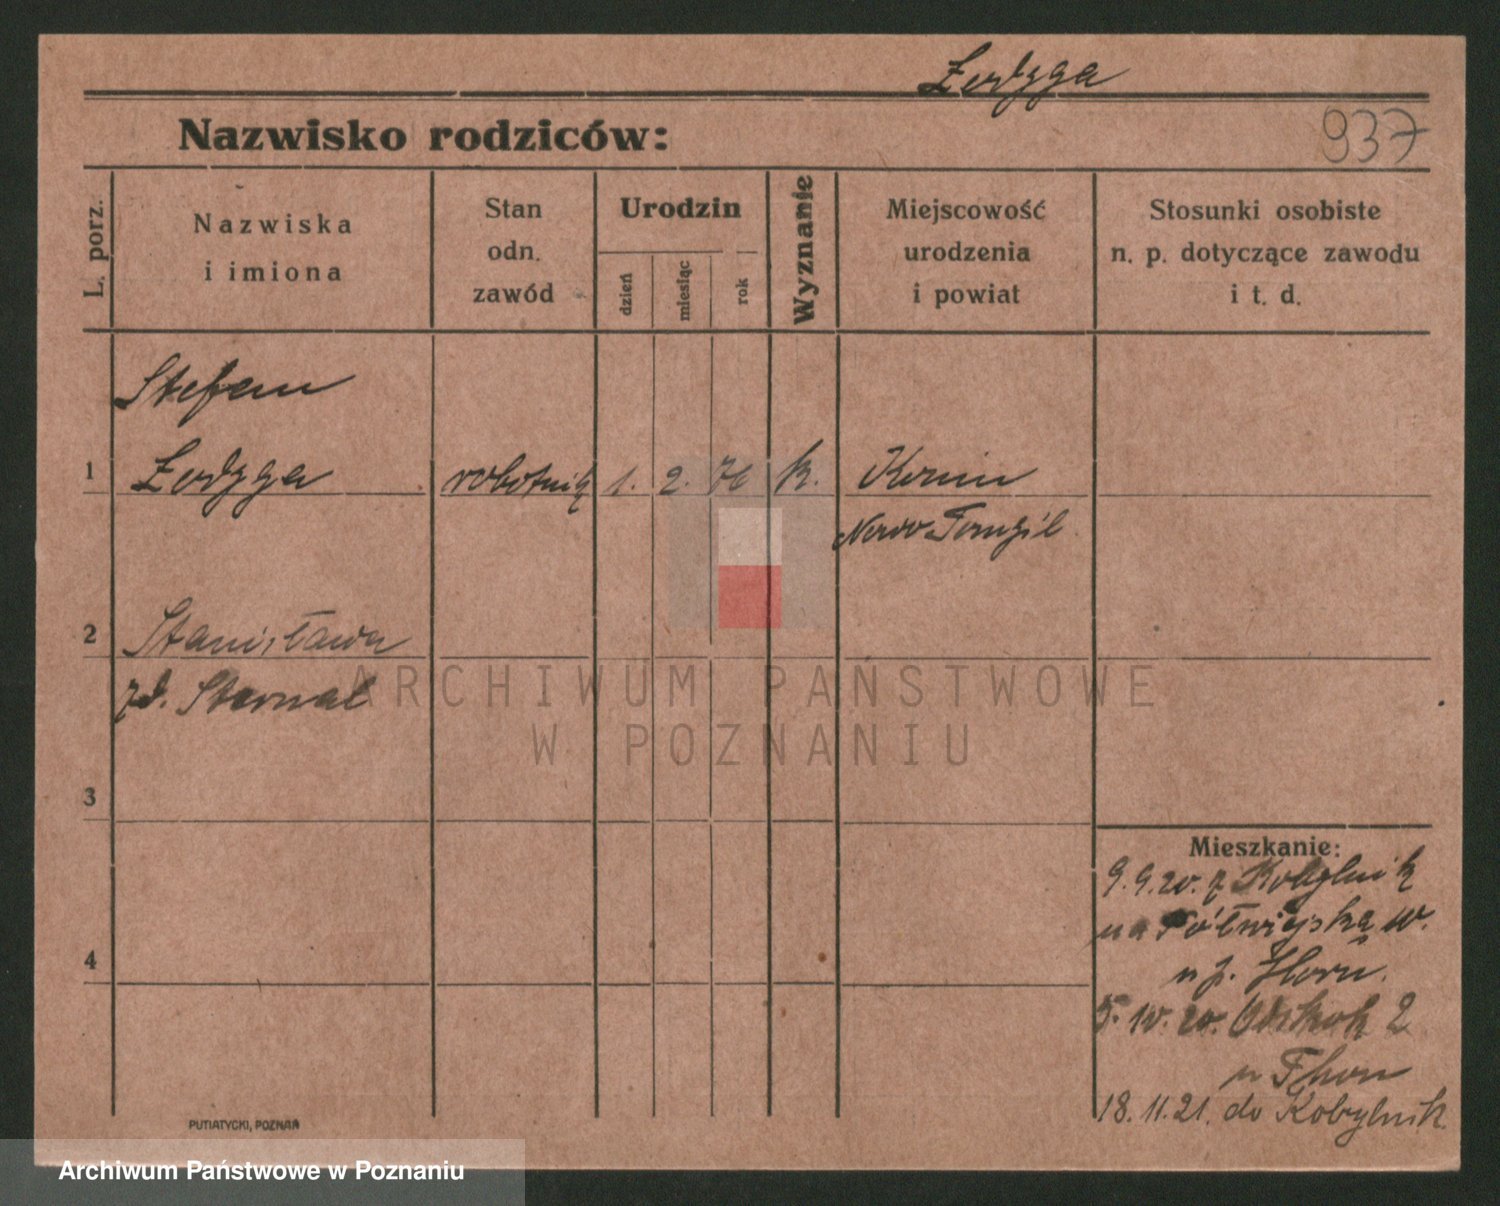 Łodyga
937
Nazwisko rodziców:
L. porz.
Nazwiska
i imiona
Stan
odn.
zawód
Urodzin
dzień
miesiąc
rok
Wyznanie
Miejscowość
urodzenia
i powiat
Stosunki osobiste
n. p. dotyczące zawodu
i t. d.
Stefan
1 Łodyga robotnik 1. 2. 76 k. Konin
Nowo Tomyśl
2 Stanisława
zd.
3
4
Mieszkanie:
9.9.20. z Kobylnik
na Półwiejską
u
5. 10. 20. 2
u
18.11.21. do Kobylnik
PUTIATYCKI, POZNAŃ
ARCHIWUM PAŃSTWOWE
W POZNANIU
Archiwum Państwowe w Poznaniu